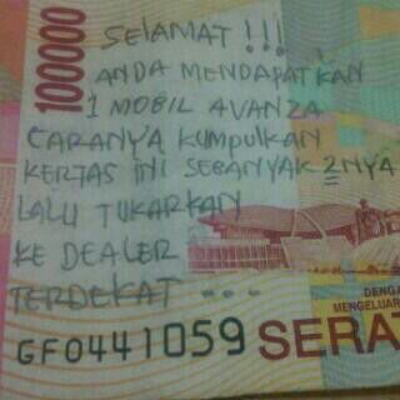 100000
SELAMAT !!!
ANDA MENDAPATKAN
1 MOBIL AVANZA
CARANYA KUMPULKAN
KERTAS INI SEBANYAK 2NYA
LALU TUKARKAN
KE DEALER
TERDEKAT ---
DENGA
MENGELUAR
GF0441059 SERAT